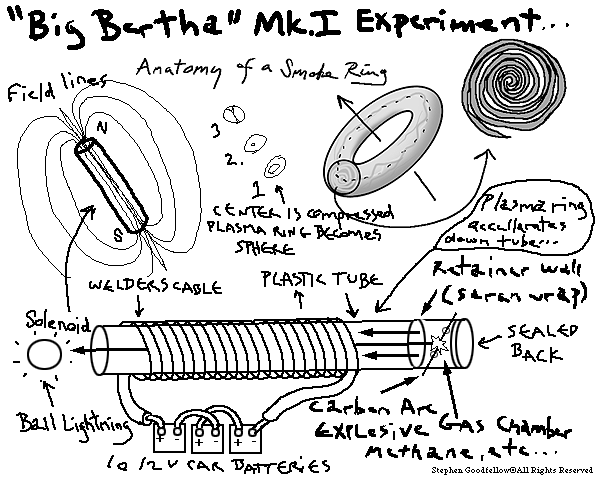 "Big Bertha" Mk.I Experiment...
Anatomy of a Smoke Ring
Field lines
N
S
3
2.
1
CENTER IS compressed
PLASMA RING BECOMES
SPHERE
Plasma ring
accullerates
down tube...
Retainer wall
(saran wrap)
WELDERS CABLE
PLASTIC TUBE
Solenoid
SEALED
BACK
Ball Lightning
+ - + - + -
10 12V CAR BATTERIES
Carbon Arc
EXPLOSIVE GAS Chamber
Methane, etc...
Stephen Goodfellow©All Rights Reserved